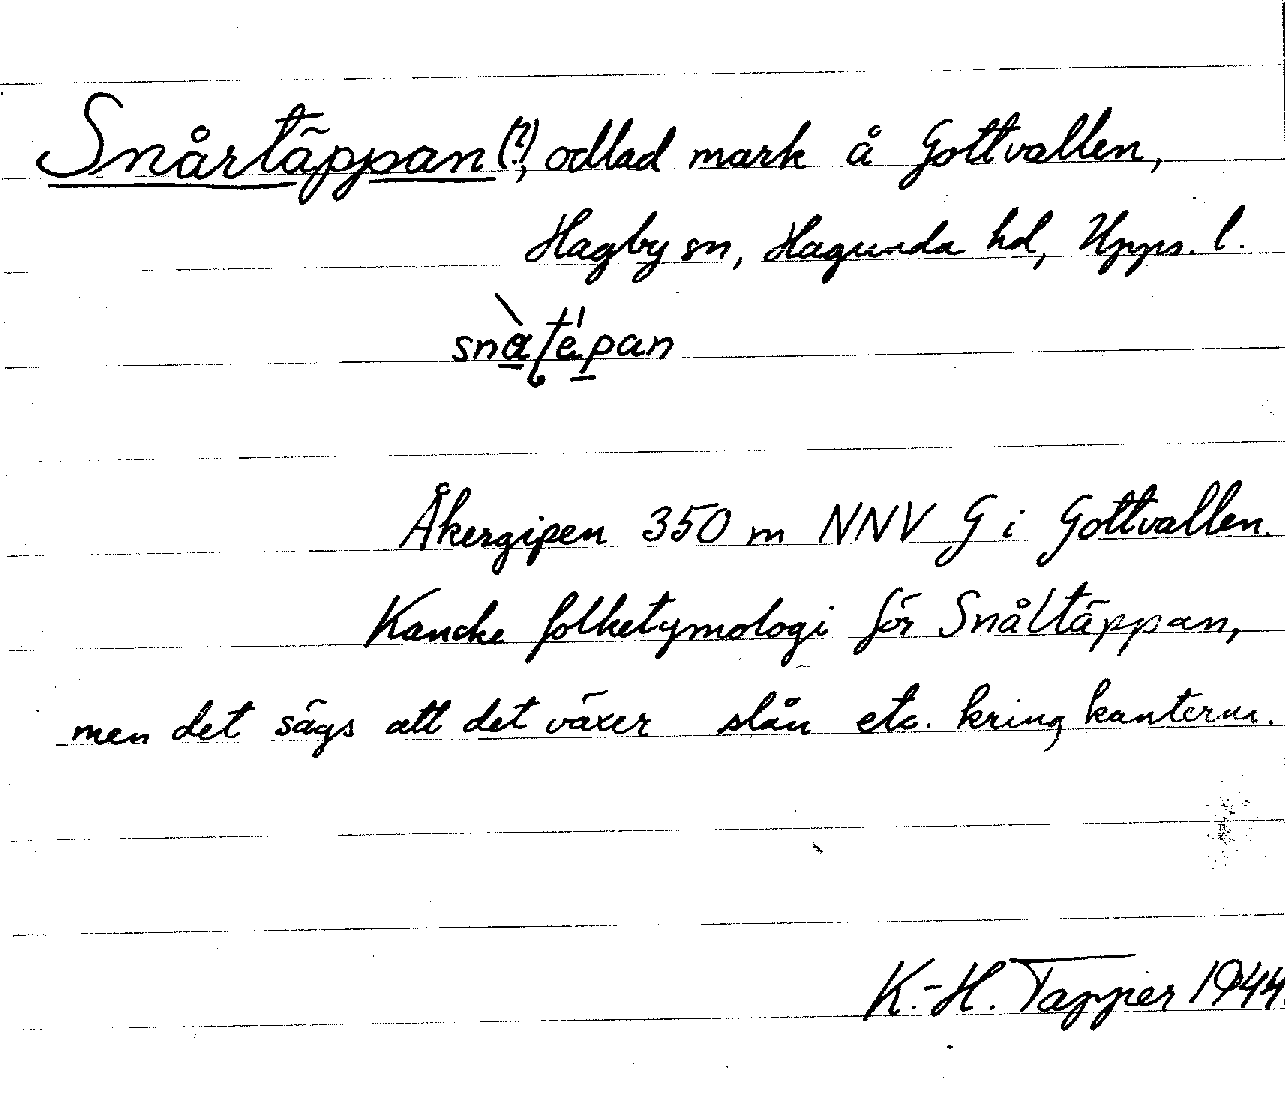 Snårtäppan (?), odlad mark å Gottvallen,
Hagby sn, Hagunda hd, Upps. l.
Åkergipen 350 m NNV G i Gottvallen.
Kanske folketymologi för Snåltäppan,
men det sägs att det växer slån etc. kring kanterna.
K.-H. Tappier 1944.